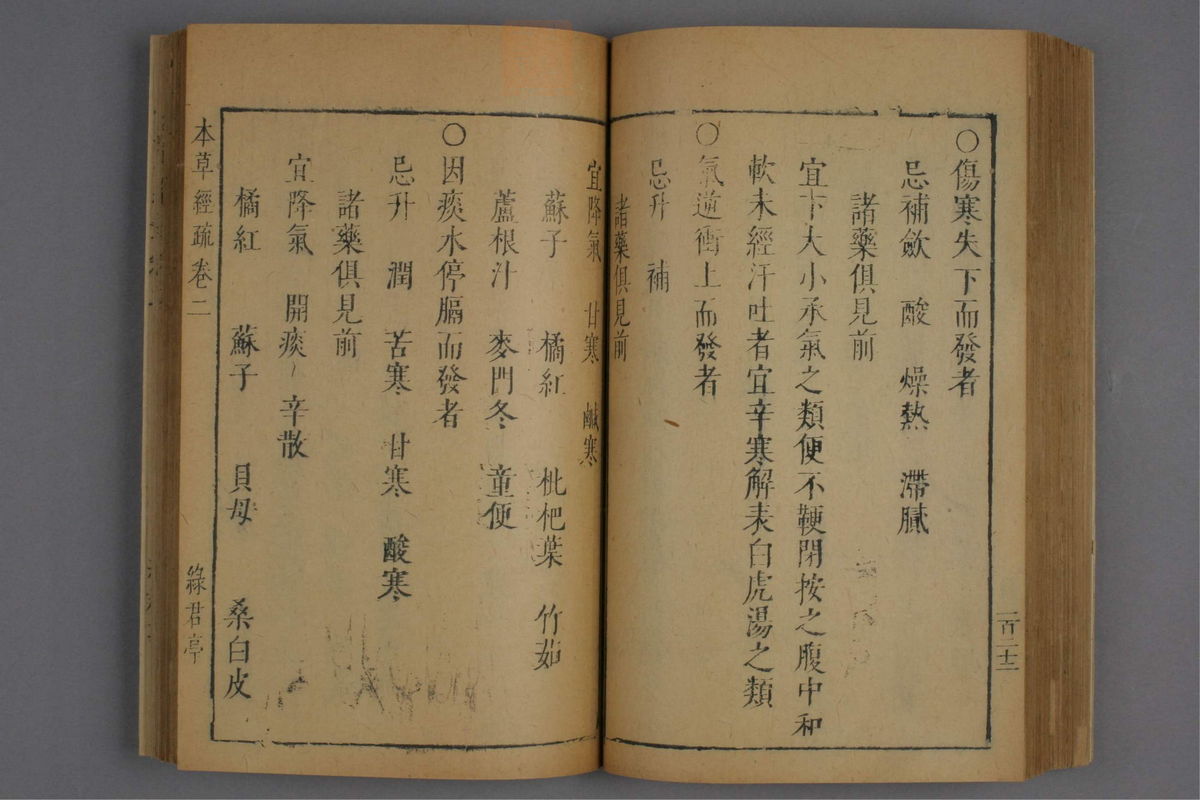 〇傷寒失下而發者
忌補斂　酸　燥熱　滯膩
諸藥俱見前
宜下大小承氣之類便不鞕閉按之腹中和
軟未經汗吐者宜辛寒解表白虎湯之類
〇氣逆衝上而發者
忌升　補
諸藥俱見前
宜降氣　甘寒　鹹寒
蘇子　橘紅　枇杷葉　竹茹
蘆根汁　麥門冬　童便
〇因痰水停膈而發者
忌升　潤　苦寒　甘寒　酸寒
諸藥俱見前
宜降氣　開痰　辛散
橘紅　蘇子　貝母　桑白皮
本草經疏卷二
綠君亭